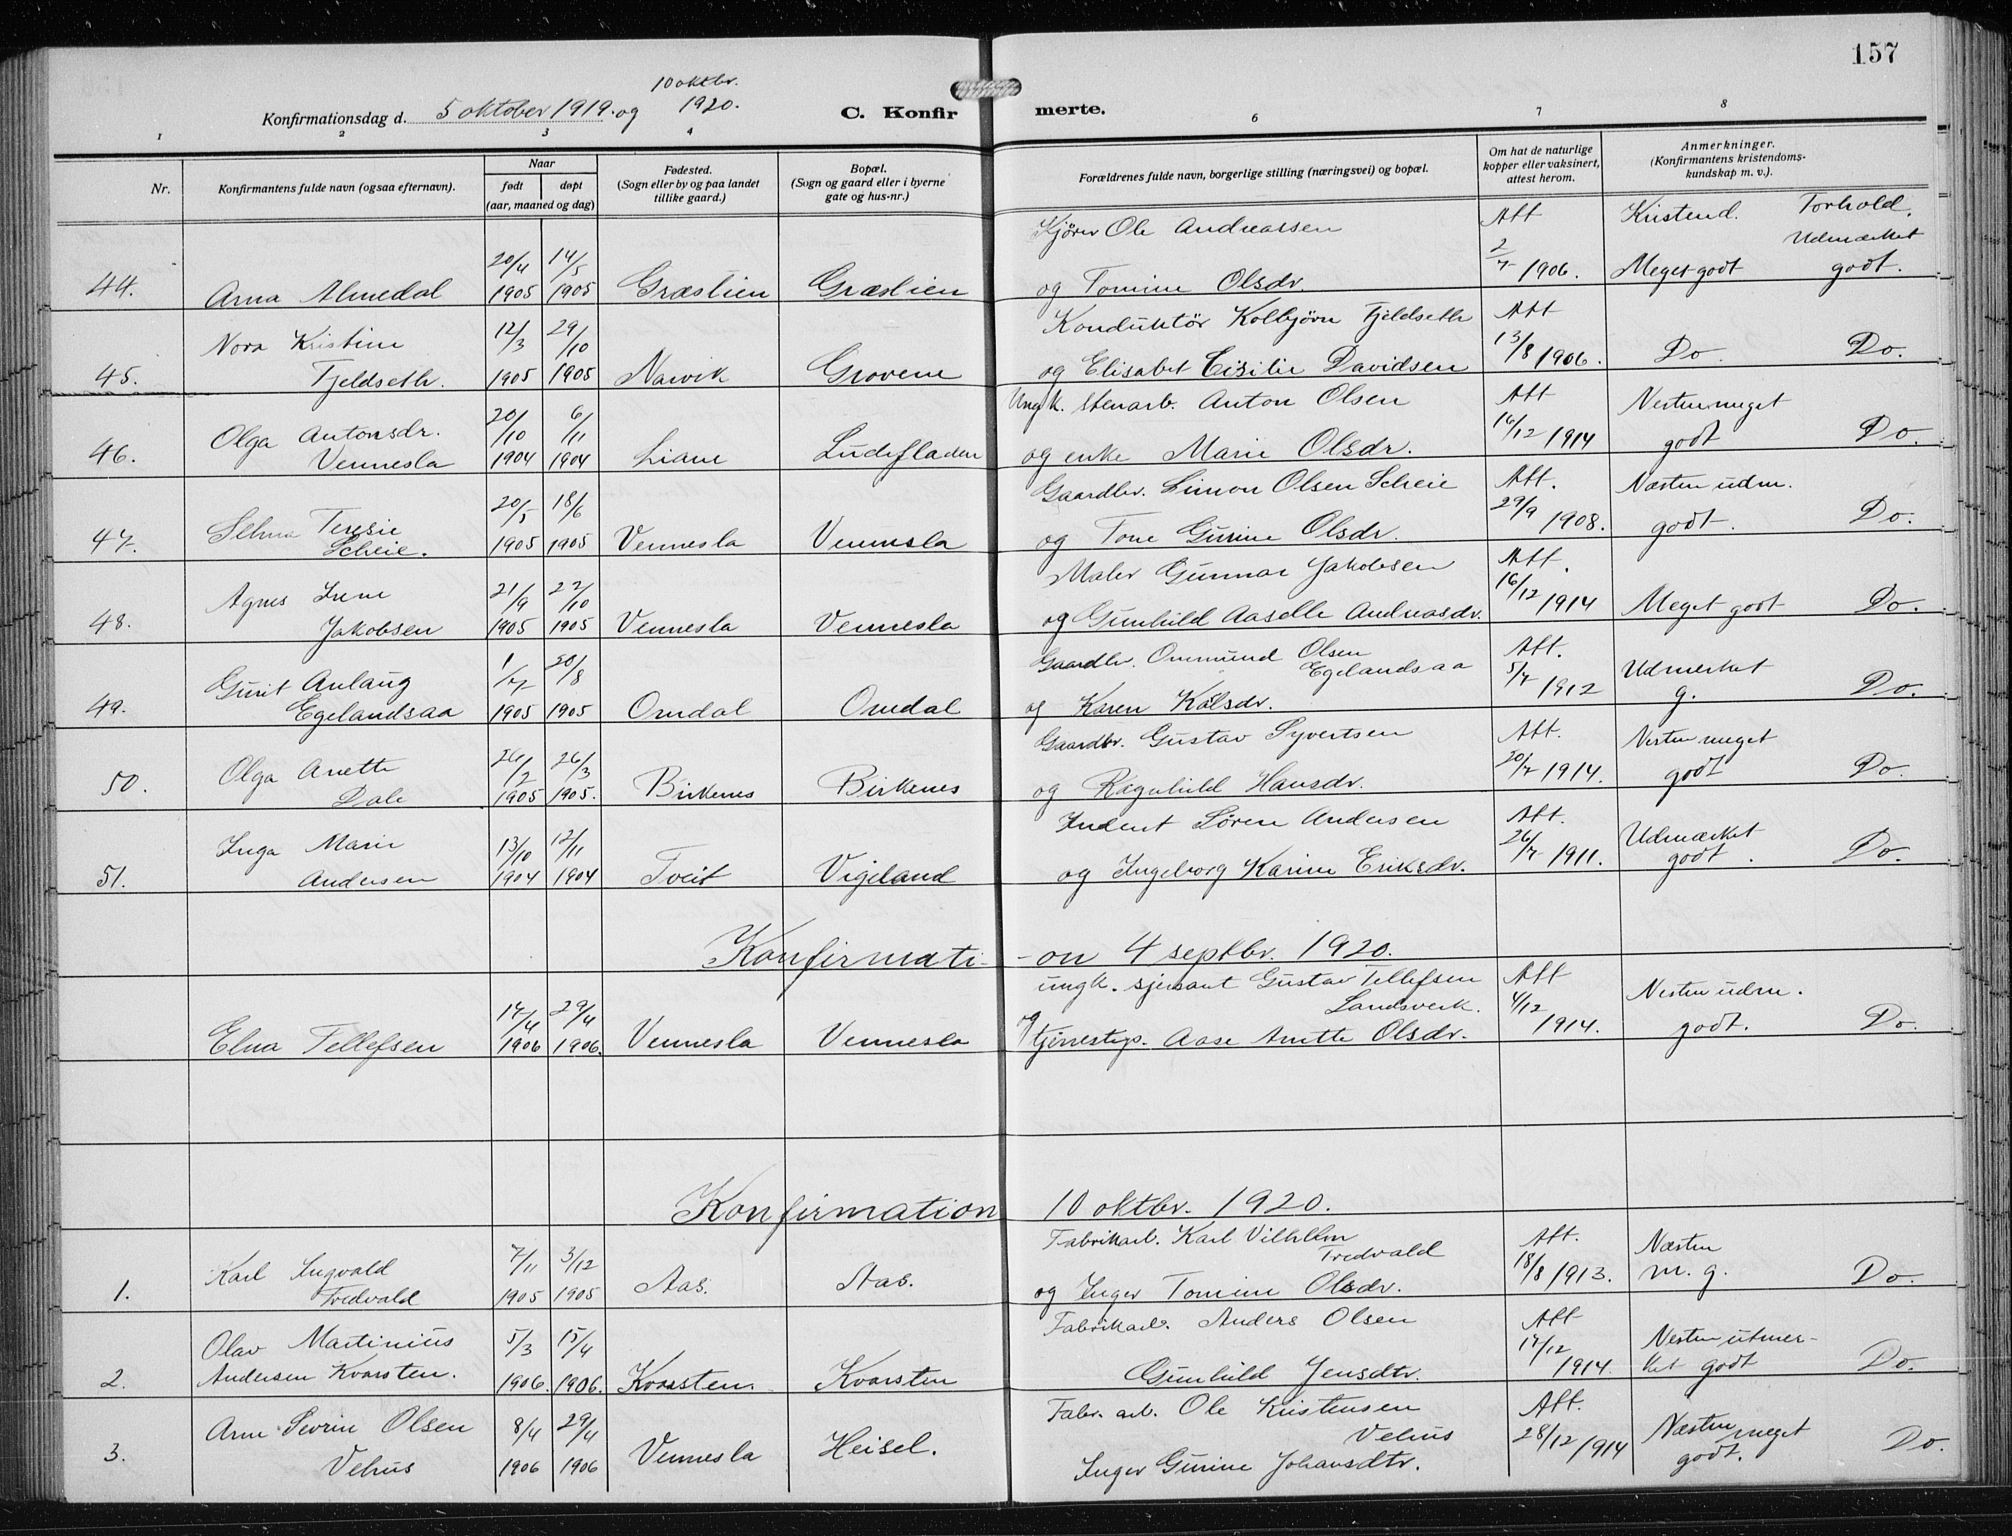 157
10 oktbr.
Konfirmationsdag d. 5 oktober 1919. og 1920.
C. Konfirmerte.
1 2 3 4 6 7 8
Nr.
Konfirmantens fulde navn (ogsaa efternavn).
Naar
født døpt
(aar, maaned og dag)
Fødested.
(Sogn eller by og paa landet
tillike gaard.)
Bopæl.
(Sogn og gaard eller i byerne
gate og hus-nr.)
Forældrenes fulde navn, borgerlige stilling (næringsvei) og bopæl.
Om hat de naturlige
kopper eller vaksinert,
attest herom.
Anmerkninger.
(Konfirmantens kristendoms-
kundskap m. v.).
Kjører Ole Andreassen Att Kristend. Forhold.
20/4 14/5 2/7 1906. Udmærket
44. Arna Almedal 1905 1905 Græslien Græslien og Tomine Olsdr. Meget godt godt.
Nora Kristine 12/3 29/10 Konduktör Kolbjørn Fjeldseth Att
45. Fjeldseth. 1905 1905 Narvik Grovene og Elisabet Cisilie Davidsen 13/8 1906. Do. Do.
Olga Antonsdr. 20/10 6/11 Ungk. stenarb. Anton Olsen Att Nesten meget
46. Vennesla 1904 1904 Liane Ludefladen og enke Marie Olsdr. 16/12 1914 godt Do.
Selma Teresie 20/5 18/6 Gaardbr. Simon Olsen Scheie Att. Næsten udm.
47. Scheie. 1905 1905 Vennesla Vennesla og Tone Gurine Olsdr. 29/9 1908. godt. Do.
Agnes Irene 21/9 22/10 Maler Gunnar Jakobsen Att.
48. Jakobsen 1905 1905 Vennesla Vennesla og Gunhild Aaselle Andreasdr. 16/12 1914 Meget godt Do.
Gurit Anlaug 1/7 20/8 Gaardbr. Ommund Olsen Att. Udmerket
Egelandsaa
49. Egelandsaa 1905 1905 Omdal Omdal og Karen Kalsdr. 5/7 1912 g. Do.
Olga Anette 26/2 26/3 Gaardbr. Gustav Syvertsen Att. Nesten meget
50. Dale 1905 1905. Birkenes Birkenes og Ragnhild Hansdr. 20/7 1914. godt Do.
Inga Marie 13/10 12/11 Indent Sören Andersen Att. Udmærket
51. Andersen 1904 1904 Tveit Vigeland og Ingeborg Karine Eriksdr. 26/7 1911. godt. Do.
Konfirmati- -on 4 septbr. 1920.
ungk. sjersant Gustav Tellefsen Att Nesten udm.
17/4 29/4 Landsverk. 4/12
Elna Tellefsen 1906 1906. Vennesla Vennesla tjenestep. Aase Anette Olsdr. 1914. godt. Do.
Konfirmation 10 oktbr. 1920.
Karl Ingvald 7/11 3/12 Fabrikarb. Karl Vilhelm Att. Næsten
Tredvald
1. Tredvald 1905 1905 Aas. Aas. og Inger Tomine Olsdr. 18/8 1913. m. g. Do.
Olav Martinius 5/3 15/4 Fabrikarb. Anders Olsen Att Nesten utmer-
2. Andersen Kvarsten. 1906. 1906. Kvarsten. Kvarsten Gunhild Jensdtr. 17/12 1914. ket godt Do.
Arne Sevrin Olsen 8/4 29/4 Fabr. arb. Ole Kristensen Att. Næsten meget
Vehus
3. Vehus 1906 1906 Vennesla Heisel. Inger Gurine Johansdtr. 28/12 1914 godt. Do.